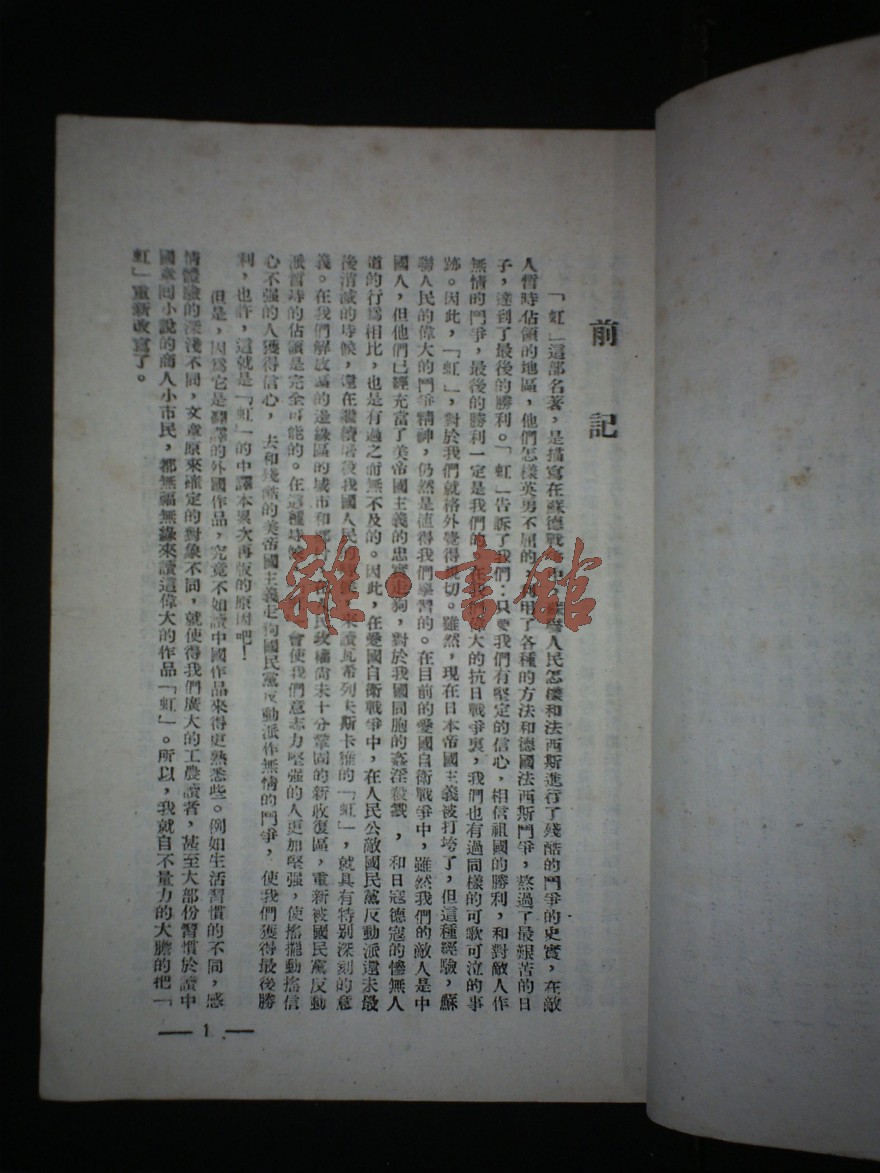 前記
「虹」這部名著,是描寫在蘇德戰爭中,蘇聯人民怎樣和法西斯進行了殘酷的鬥爭的史實,在敵
人暫時佔領的地區,他們怎樣英勇不屈的,利用了各種的方法和德國法西斯鬥爭,熬過了最艱苦的日
子,達到了最後的勝利。「虹」告訴了我們:只要我們有堅定的信心,相信祖國的勝利,和對敵人作
無情的鬥爭,最後的勝利一定是我們的。在我們偉大的抗日戰爭裏,我們也有過同樣的可歌可泣的事
跡。因此,「虹」,對於我們就格外覺得親切。雖然,現在日本帝國主義被打垮了,但這種經驗,蘇
聯人民的偉大的鬥爭精神,仍然是值得我們學習的。在目前的愛國自衛戰爭中,雖然我們的敵人是中
國人,但他們已經充當了美帝國主義的忠實走狗,對於我國同胞的姦淫殺戮,和日寇德寇的慘無人
道的行爲相比,也是有過之而無不及的。因此,在愛國自衛戰爭中,在人民公敵國民黨反動派還未最
後消滅的時候,還在繼續屠殺我國人民的時候,來讀瓦希列夫斯卡雅的「虹」,就具有特別深刻的意
義。在我們解放區的邊緣區的城市和鄉村,民政權尚未十分鞏固的新收復區,重新被國民黨反動
派暫時的佔領是完全可能的。在這種時候,會使我們意志力堅强的人更加堅强,使搖擺動搖信
心不强的人獲得信心,去和殘酷的美帝國主義走狗國民黨反動派作無情的鬥爭,使我們獲得最後勝
利,也許,這就是「虹」的中譯本累次再版的原因吧!
但是,因爲它是翻譯的外國作品,究竟不如讀中國作品來得更熟悉些。例如生活習慣的不同,感
情體驗的深淺不同,文章原來確定的對象不同,就使得我們廣大的工農讀者,甚至大部份習慣於讀中
國章回小說的商人小市民,都無福無緣來讀這偉大的作品「虹」。所以,我就自不量力的大膽的把「
虹」重新改寫了。
— 1 —
雜·書館